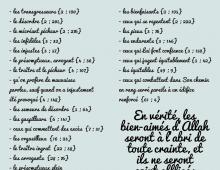 - le transgresseur { 2 : 190 }
- le désordre { 2 : 205 }
- le mécréant pécheur { 2 : 276 }
- les infidèles { 3 : 32 }
- les injustes { 3 : 57 }
- le présomptueux, arrogant { 4 : 36 }
- le traître et le pécheur { 4 : 107 }
- qu'on profère de mauvaises
paroles, sauf quand on a injustement
été provoqué { 4 : 148 }
- les semeurs de désordre { 5 : 64 }
- les gaspilleurs { 6 : 141 }
- ceux qui commettent des excès { 7 : 31 }
- les orgueilleux { 16 : 23 }
- le traître ingrat { 22 : 38 }
- les arrogants { 28 : 76 }
- le présomptueux plein
- les bienfaisants { 2 : 195 }
- ceux qui se repentent { 2 : 222 }
- les pieux { 3 : 76 }
- les endurants { 3 : 146 }
- ceux qui Lui font confiance { 3 : 159 }
- ceux qui jugent équitablement { 5 : 42 }
- les équitables { 49 : 9 }
- ceux qui combattent dans Son chemin
en rang serré pareils à un édifice
renforcé { 61 : 4 }
En vérité, les
bien-aimés d'Allah
seront à l'abri de
toute crainte, et
ils ne seront